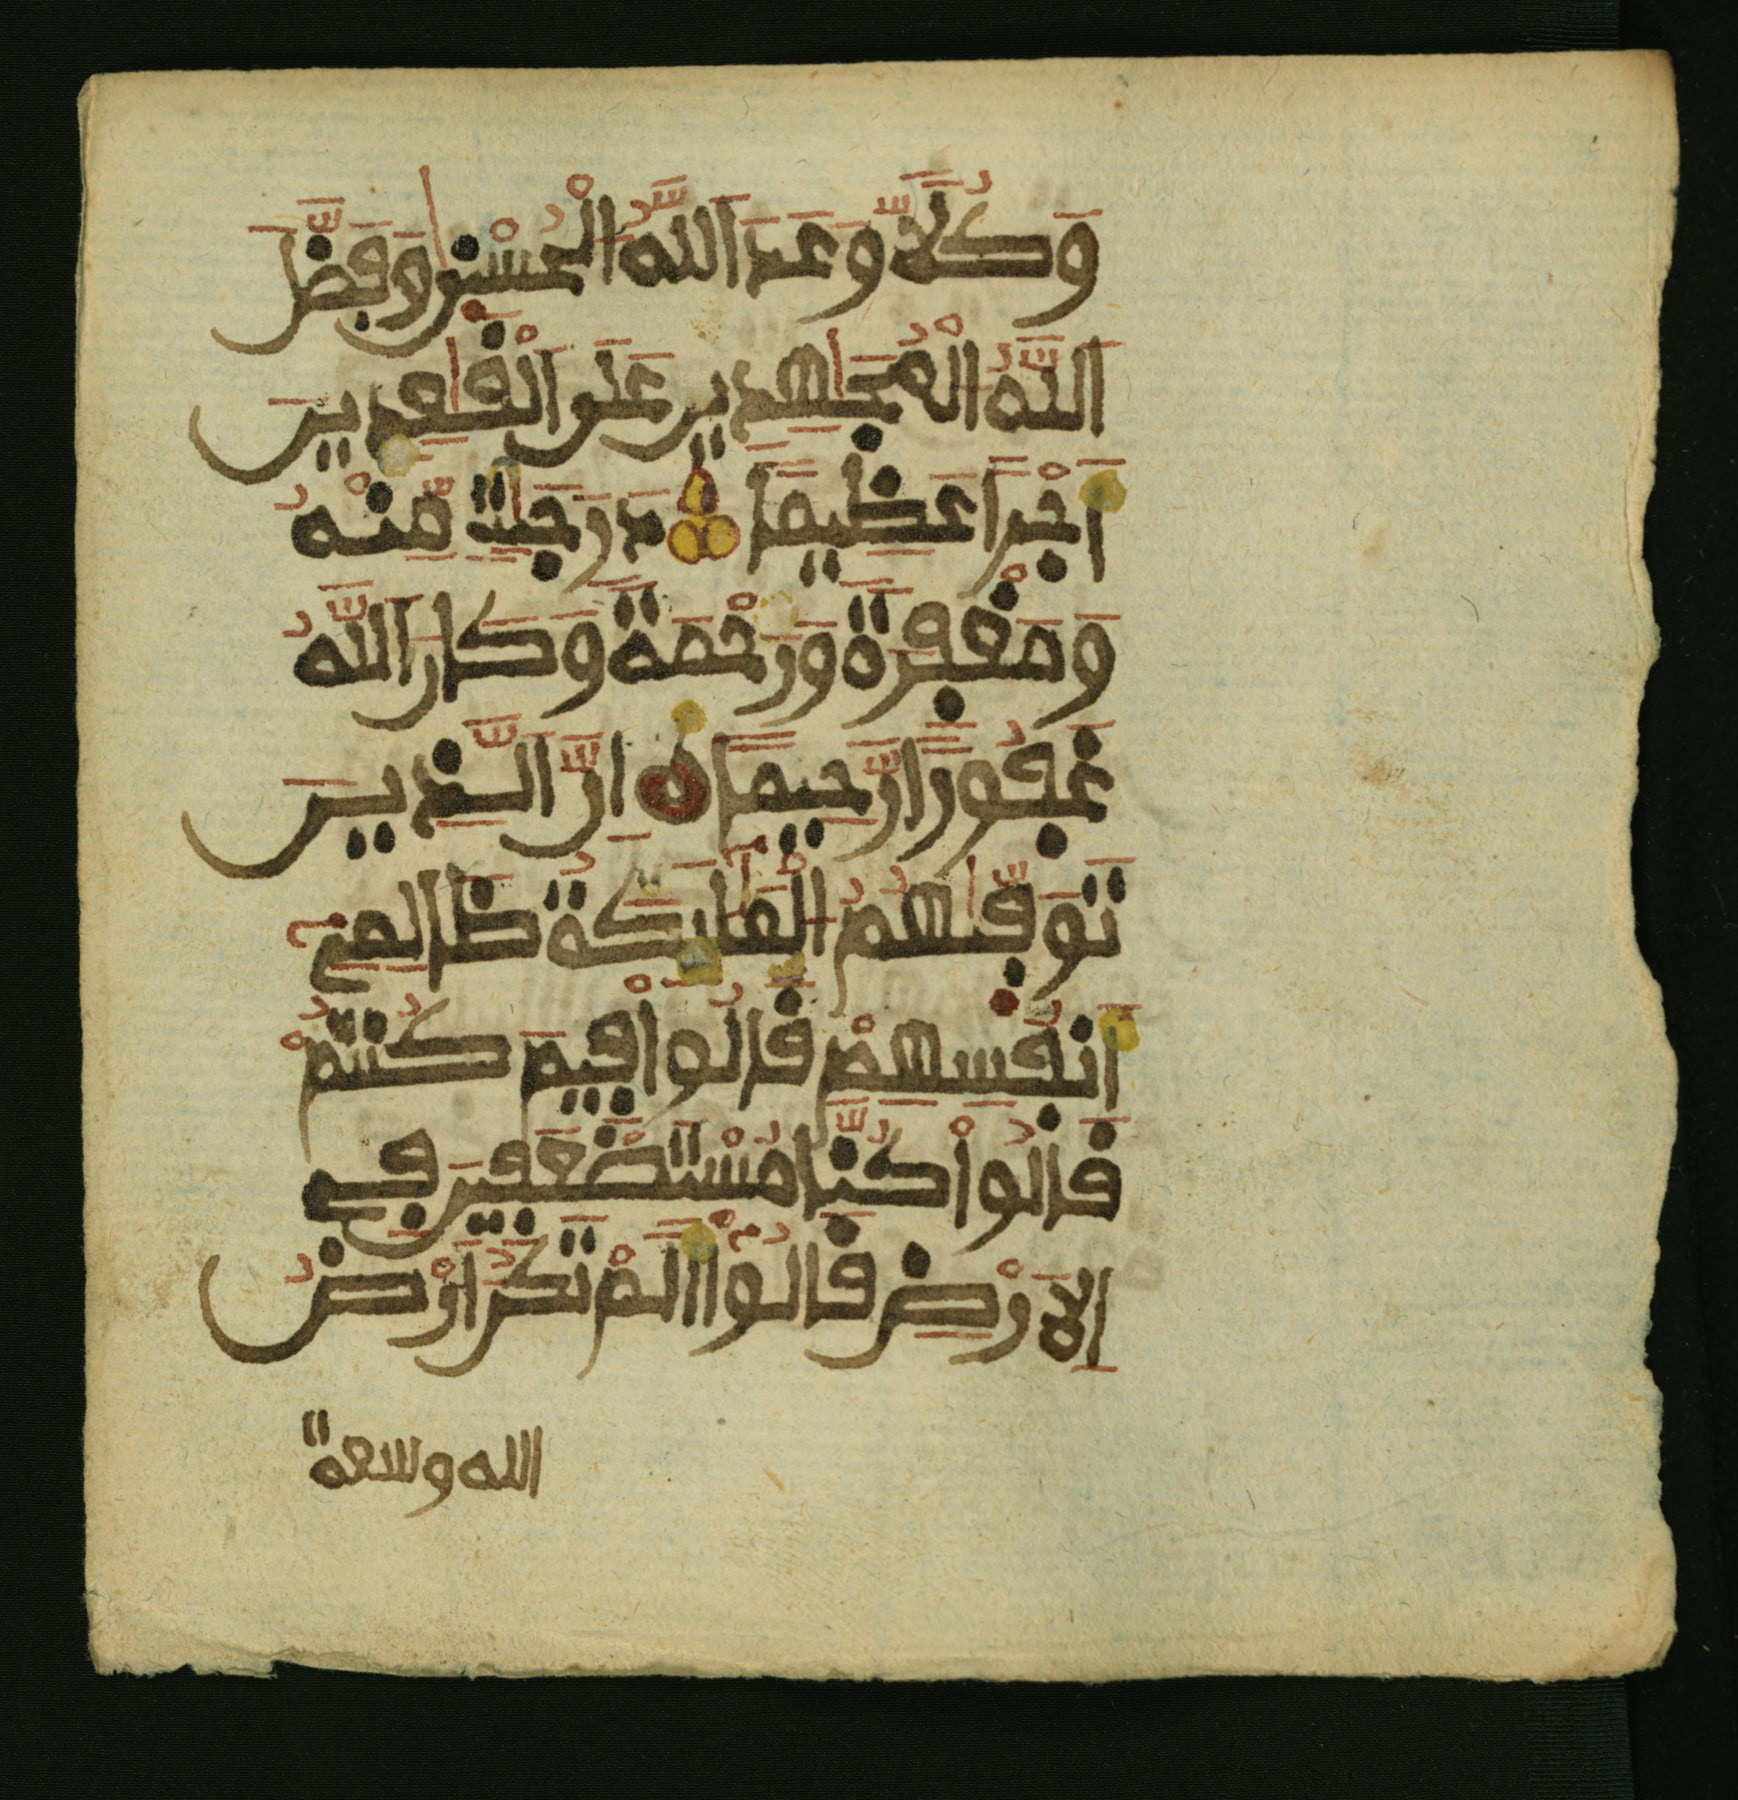 وَكُلّٗا وَّعَدَ اَللَّهُ الْحُسْنۭيٰ وَفَضَّلَ
اَللَّهُ الْمُجَٰهِدِينَ عَلَي اَلْقَٰعِدِينَ
أَجْراً عَظِيماً دَرَجَٰتٖ مِّنْهُ
وَمَغْفِرَةً وَرَحْمَةً وَكَانَ اَللَّهُ
غَفُوراً رَّحِيماً اِنَّ اَلَّذِينَ
تَوَفّۭيٰهُمُ الْمَلَٰٓئِكَةُ ظَالِمِےٓ
أَنفُسِهِمْ قَالُواْ فِيمَ كُنتُمْ
قَالُواْ كُنَّا مُسْتَضْعَفِينَ فِے
اِلَارْضِ قَالُوٓاْ أَلَمْ تَكُنَ اَرْضُ
الله وسعة